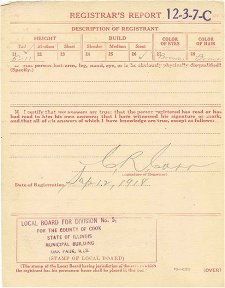 REGISTRAR'S REPORT 12-3-7-C
DESCRIPTION OF REGISTRANT
HEIGHT BUILD COLOR OF EYES COLOR OF HAIR
Tall Medium Short Slender Medium Stout
person lost arm, leg, hand, eye, or is he obviously physically disqualified?
(Specify.)
30. I certify that my answers are true; that the person registered has read or has
had read to him his own answers; that I have witnessed his signature or mark,
and that all of his answers of which I have knowledge are true, except as follows:
(Signature of Registrar)
Date of Registration Sep. 12, 1918
LOCAL BOARD FOR DIVISION No. 5,
FOR THE COUNTY OF COOK
STATE OF ILLINOIS
MUNICIPAL BUILDING
OAK PARK, ILL.
(STAMP OF LOCAL BOARD)
(The stamp of the Local Board having jurisdiction of the area in which
the registrant has his permanent home shall be placed in this box.)
(OVER)